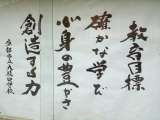 教育目標
確かな学び
心身の豊かさ
創造する力